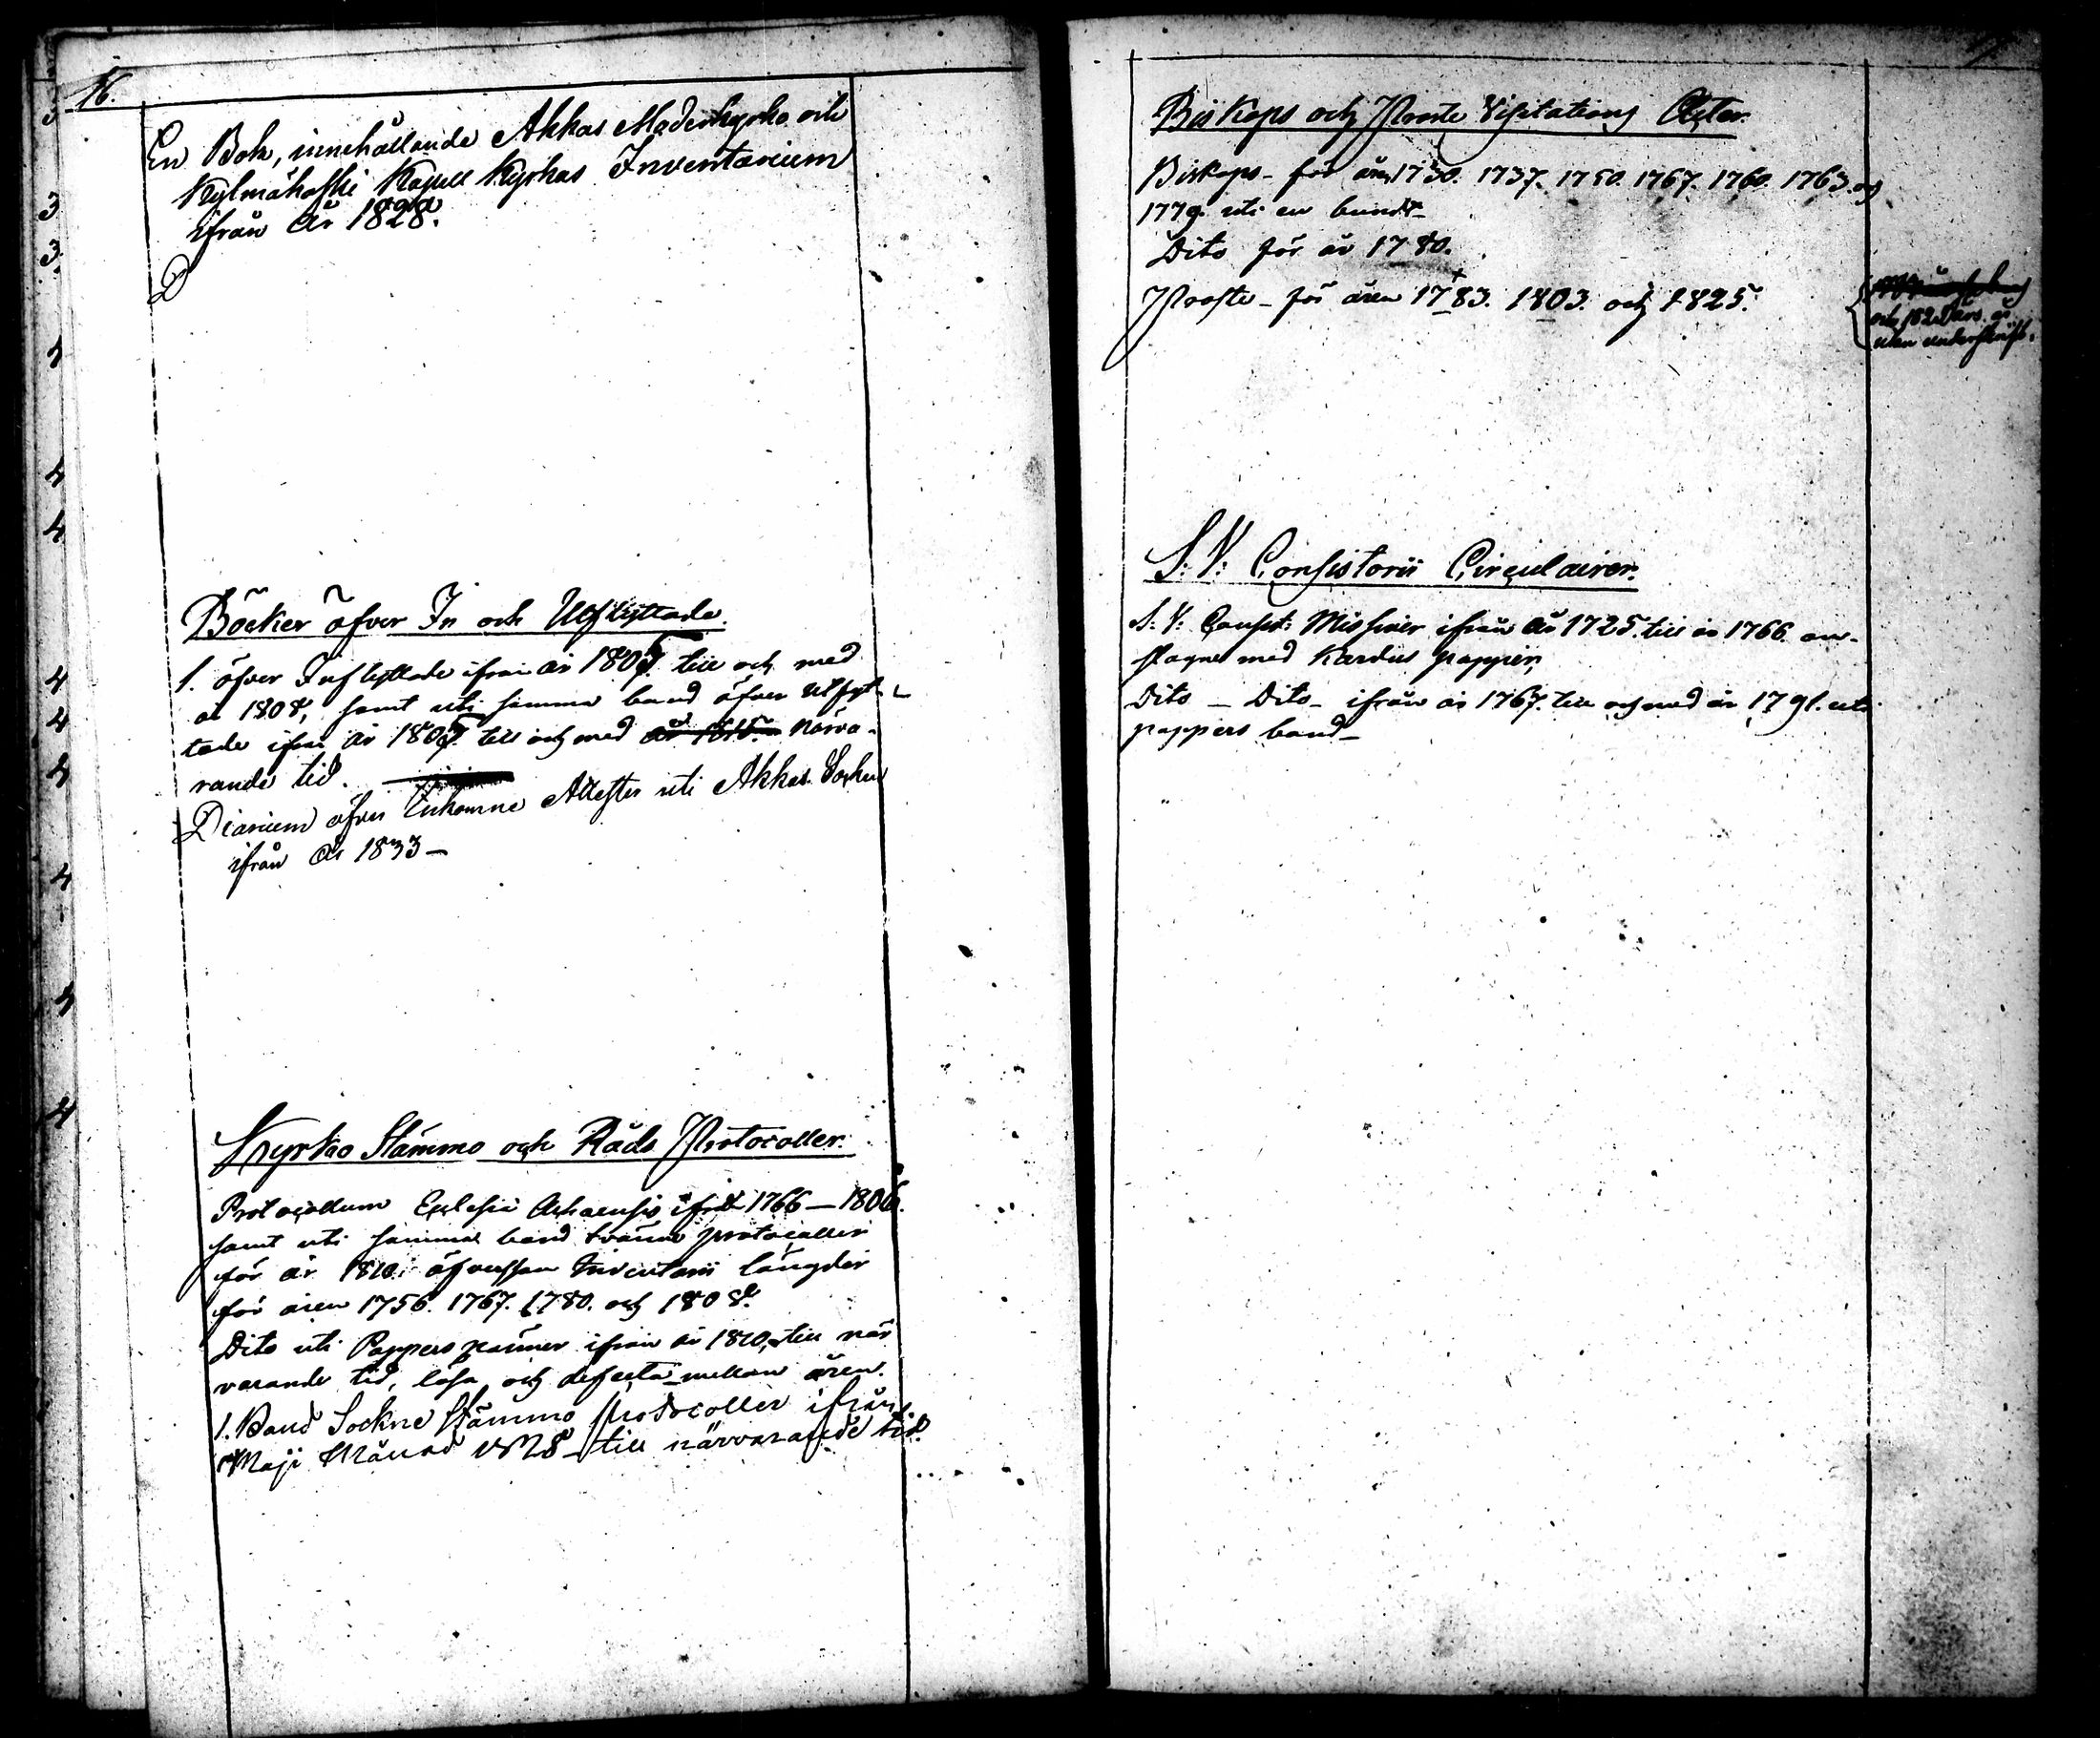 16.
En Bok, innehållande Akkas Moderkyrko och
Kylmäkoski Kapell Kyrkas Inventarium
ifrån år 1828.
D
Böcker öfver In och Utflyttade.
1. öfver Inflyttade ifrån år 1805. till och med
år 1808, samt uti samma band öfver utflyt-
tade ifrån år 1805. till och med år 1815. närva-
rande tid.
Diarium öfver Inkomne Attester uti Akkas Sochn
ifrån År 1833 —
Kyrko Stämmo och Råds Protocoller.
Protocollum Ecclesiæ Achaensis ifrån 1766 — 1806.
samt uti samma band tvänne protocoller
för år 1810. äfvensom Inventarii längder
för åren 1756. 1767. 1780. och 1808.
Dito uti Papperspärmer ifrån år 1810, till när
varande tid, lösa och defecta mellan åren.
1. Band Sockne Stämmo Protocoller ifrån
Maji Månad 1828 till närvarande tid.
17.
Biskops och Proste Visitations Acter.
Biskops - för åren 1730. 1737. 1750. 1767. 1760. 1763. och
1779. uti en bundt
Dito för år 1780.
Proste - för åren 1783. 1803. och 1825.
och 1825 års är
utan underskrift.
S: V: Consistorii Circulairer.
S: V: Consist: Missiver ifrån år 1725. till år 1766. om-
slagne med Kardus papper,
Dito — Dito - ifrån år 1767. till och med år 1791. uti
pappers band —